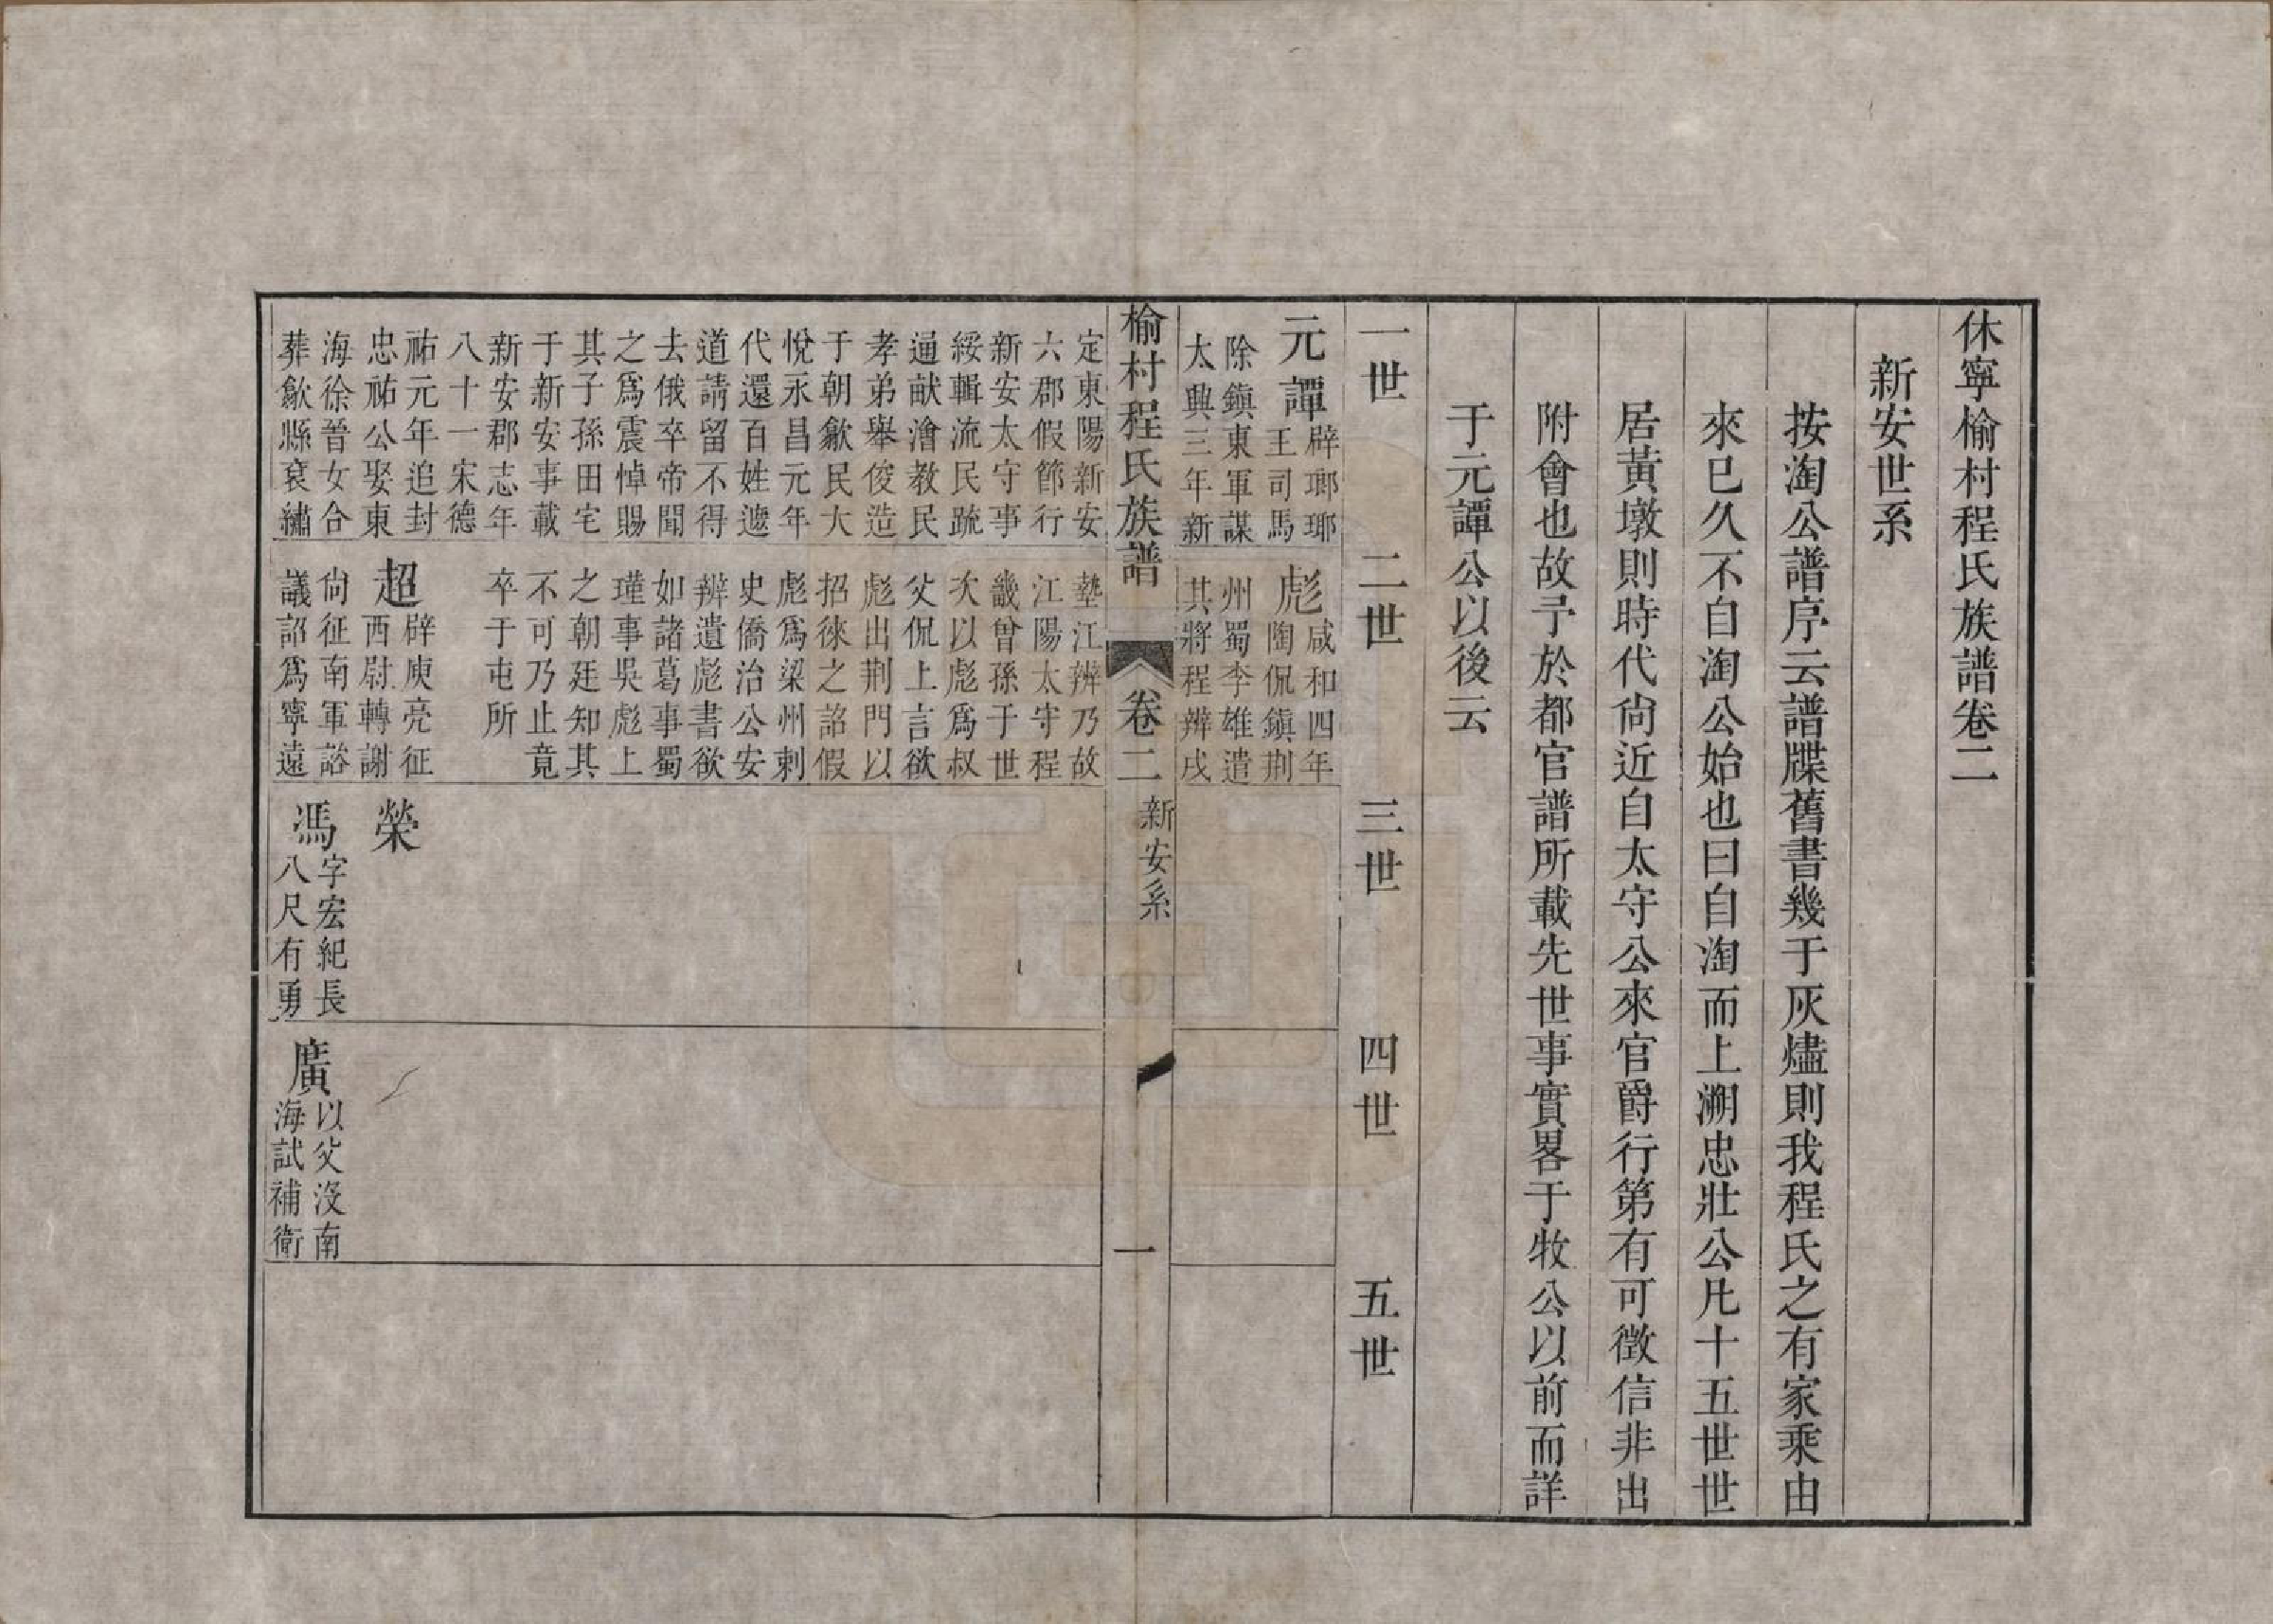 休寧榆村程氏族譜卷二
新安世系
按淘公譜序云譜牒舊書幾于灰燼則我程氏之有家乘由
來已久不自淘公始也曰自淘而上溯忠壯公凡十五世世
居黃墩則時代尙近自太守公來官爵行第有可徵信非出
附會也故予於都官譜所載先世事實畧于牧公以前而詳
于元譚公以後云
一世
二世
三世
四世
五世
元譚
辟瑯琊
王司馬
除鎭東軍謀
太興三年新
彪
咸和四年
陶侃鎭荆
州蜀李雄遣
其將程辨戍
榆村程氏族譜
卷二
新安系
一
定東陽新安
六郡假節行
新安太守事
綏輯流民䟽
通献澮教民
孝弟舉俊造
于朝歙民大
悅永昌元年
代還百姓遮
道請留不得
去俄卒帝聞
之爲震悼賜
其子孫田宅
于新安事載
新安郡志年
八十一宋德
祐元年追封
忠祐公娶東
海徐晉女合
葬歙縣裒繡
墊江辨乃故
江陽太守程
畿曾孫于世
次以彪爲叔
父侃上言欲
彪出荆門以
招徠之詔假
彪爲梁州刺
史僑治公安
辨遺彪書欲
如諸葛事蜀
瑾事吳彪上
之朝廷知其
不可乃止竟
卒于屯所
超
辟庾亮征
西尉轉謝
尙征南軍諮
議詔爲寧遠
榮
馮
字宏紀長
八尺有勇
廣
以父沒南
海試補衛